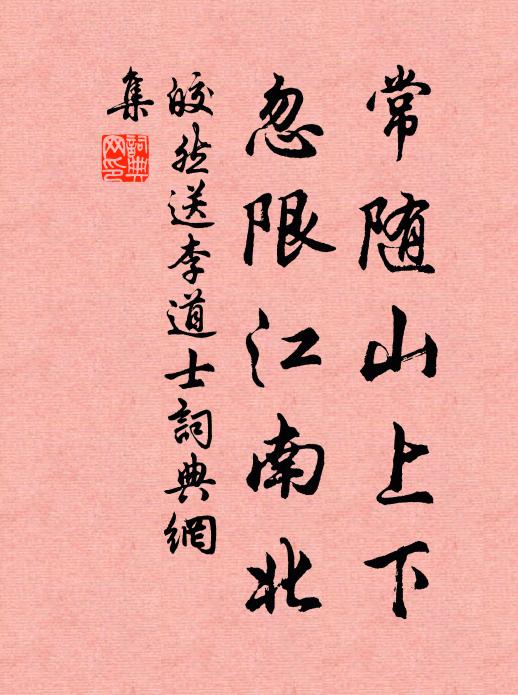 常随山上下
忽限江南北
皎然送李道士詞典網
集
詞典网印